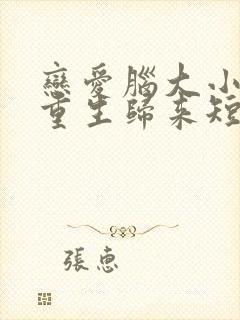 戀愛腦大小
重生歸來短
張惠